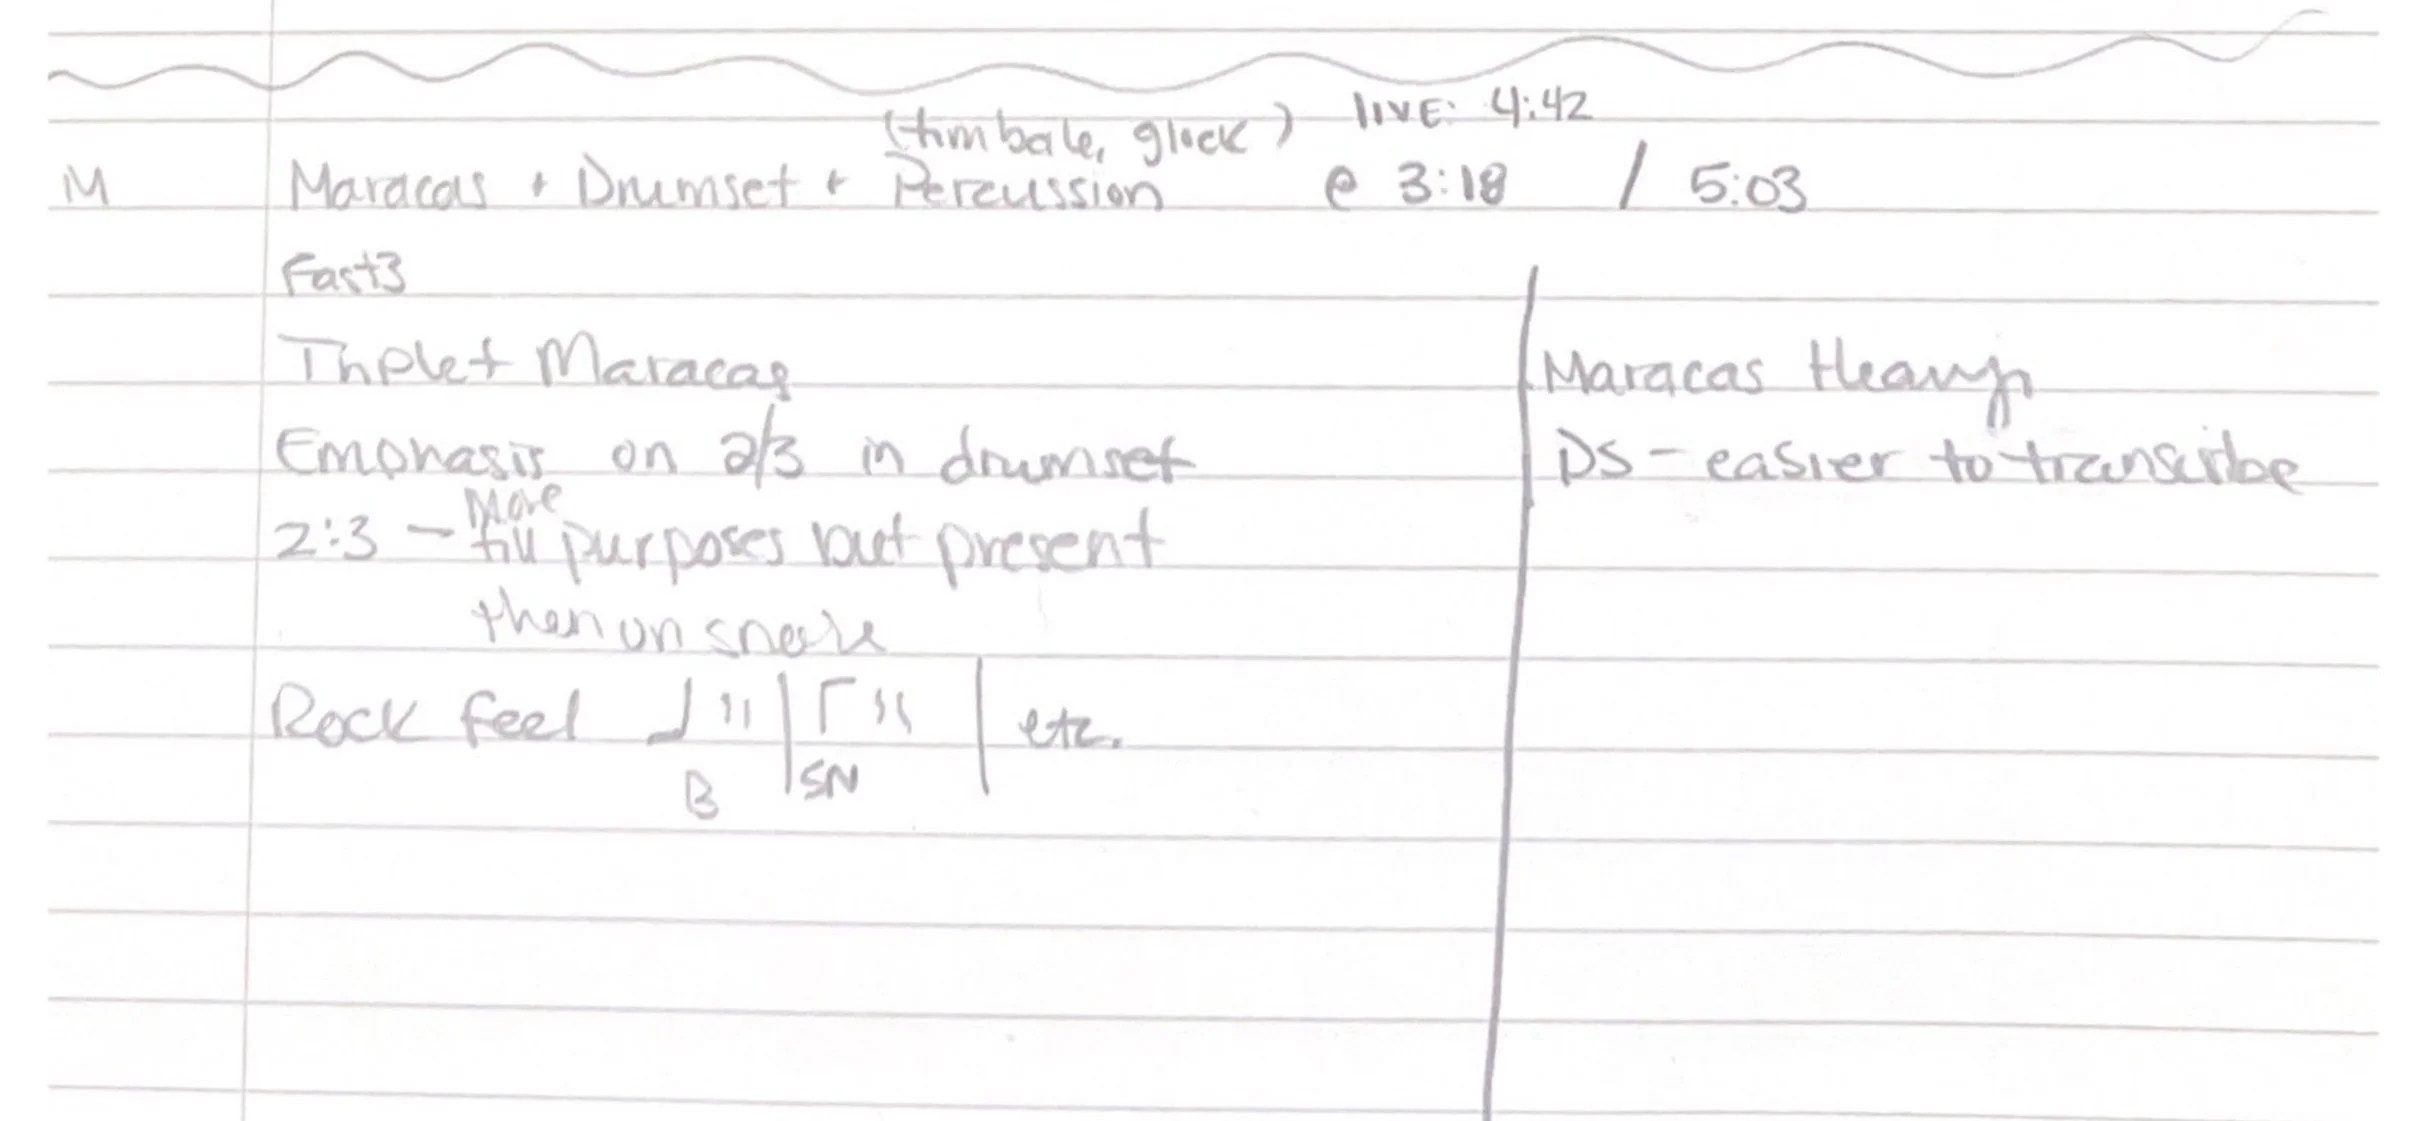 (timbale, glock) live: 4:42
M Maracas + Drumset + Percussion @ 3:18 / 5:03
Fast 3
Triplet Maracas
Maracas Heavy
Emphasis on 2/3 in drumset
DS - easier to transcribe
More
2:3 - fill purposes but present
then on snare
Rock feel etc.
B SN